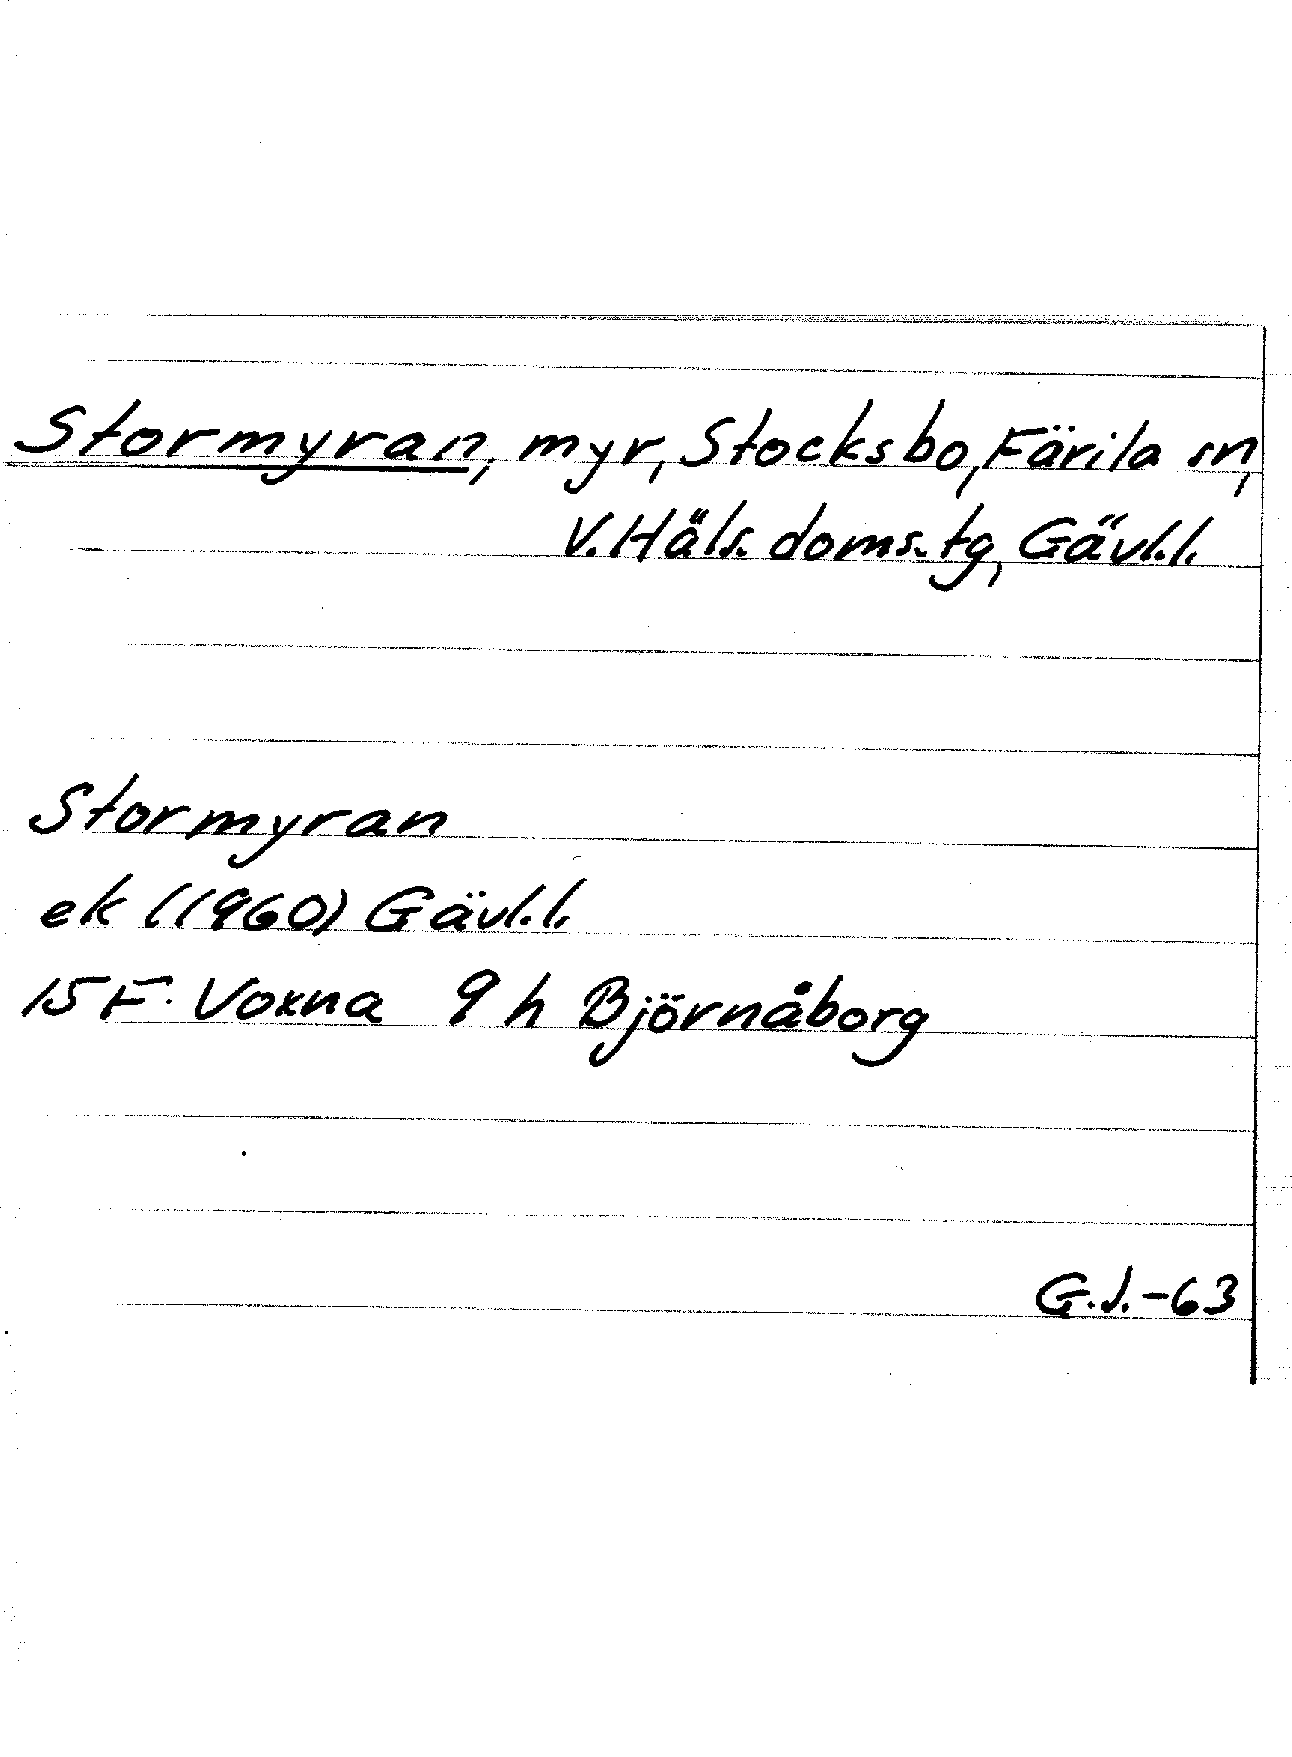 Stormyran, myr, Stocksbo, Färila sn,
V. Häls. doms. tg, Gävl.l.
Stormyran
ek (1960) Gävl.l.
15 F. Voxna 9 h Björnåborg
G.J.-63